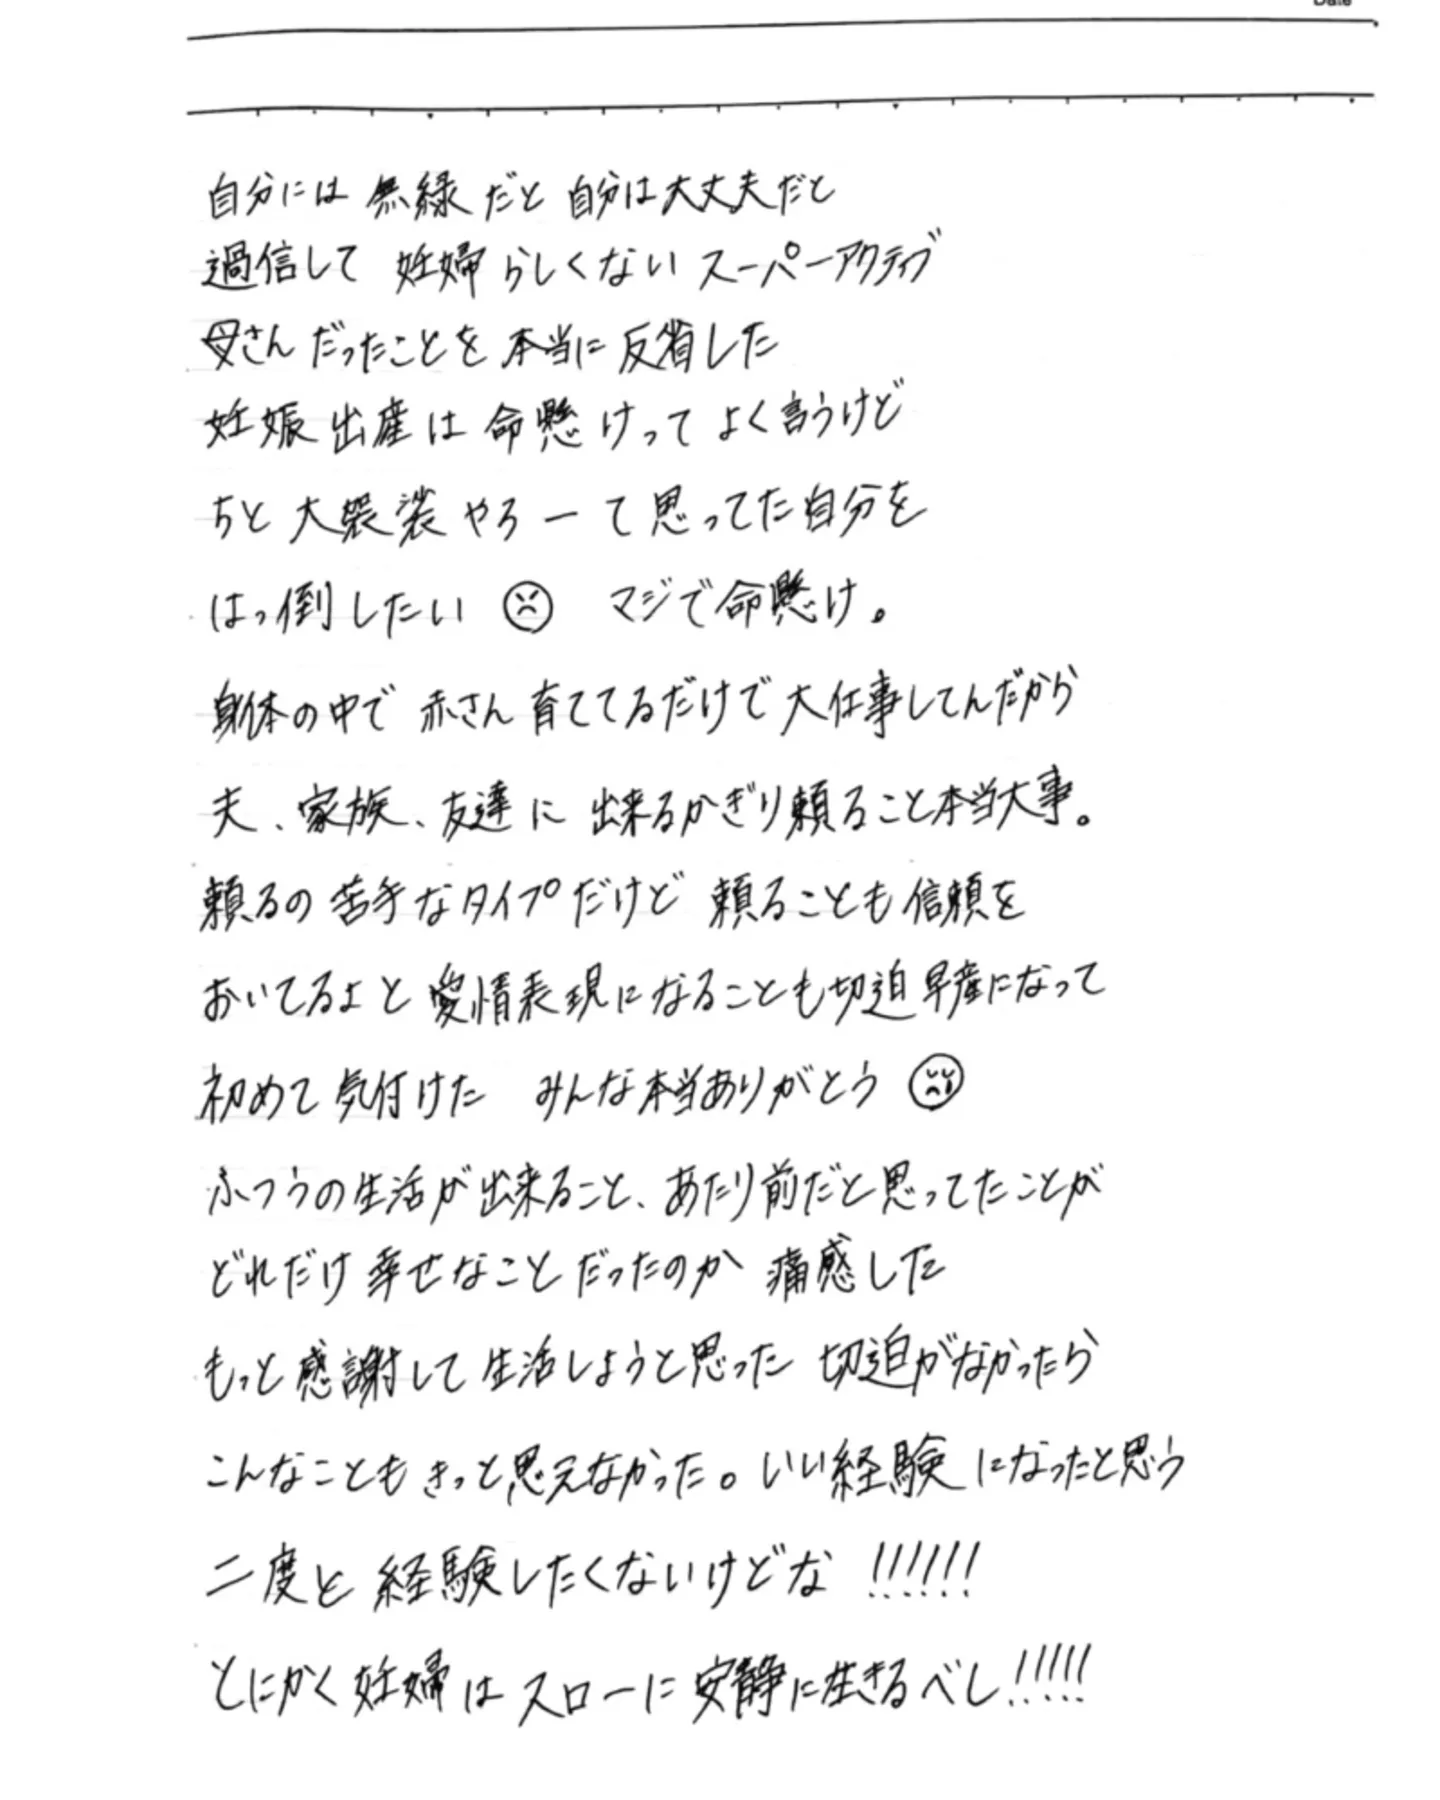 Date
自分には 無縁だと 自分は大丈夫だと
過信して 妊婦らしくない スーパーアクティブ
母さんだったことを 本当に 反省した
妊娠出産は 命懸けって よく言うけど
ちと 大袈裟やろーて思ってた自分を
はっ倒したい ☹ マジで命懸け。
身体の中で 赤さん育ててるだけで 大仕事してんだから
夫、家族、友達に 出来るかぎり頼ること本当大事。
頼るの苦手なタイプだけど 頼ることも信頼を
おいてるよと 愛情表現になることも切迫早産になって
初めて気付けた みんな本当ありがとう 😢
ふつうの生活が出来ること、あたり前だと思ってたことが
どれだけ幸せなことだったのか 痛感した
もっと感謝して生活しようと思った 切迫がなかったら
こんなこともきっと思えなかった。いい経験になったと思う
二度と経験したくないけどな !!!!!!
とにかく妊婦はスローに安静に生きるべし!!!!!